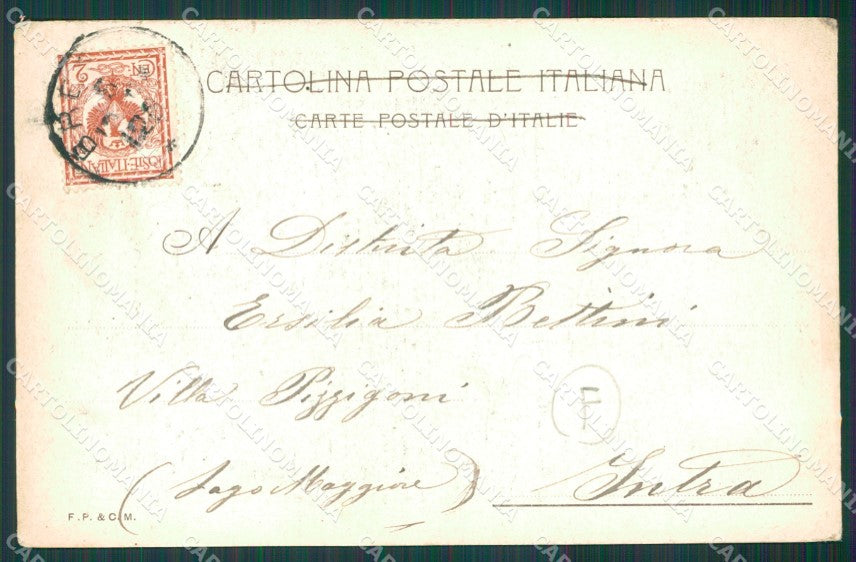 CARTOLINA POSTALE ITALIANA
CARTE POSTALE D'ITALIE
CEN 2
POSTE·ITALIANE
A Distinta Signora
Ersilia Bettini
Villa Pizzigoni
(Lago Maggiore) Intra
F. P. & C. M.
CARTOLINOMANIA